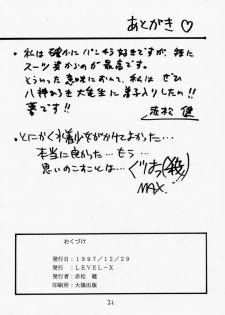 あとがき♡
・私は確かにパンチラ好きですが、特に
スーツ姿からのが最高です。
そういった意味において、私は ぜひ
八神ひろき大先生に弟子入りしたい!!
夢です!!
赤松 健
・とにかく水着少女がかけてよかった…
本当に良かった… もう…
思いのこすことは…
MAX.
おくづけ
発行日:1997/12/29
発行:LEVEL-X
発行者:赤松 健
印刷所:大陽出版
21